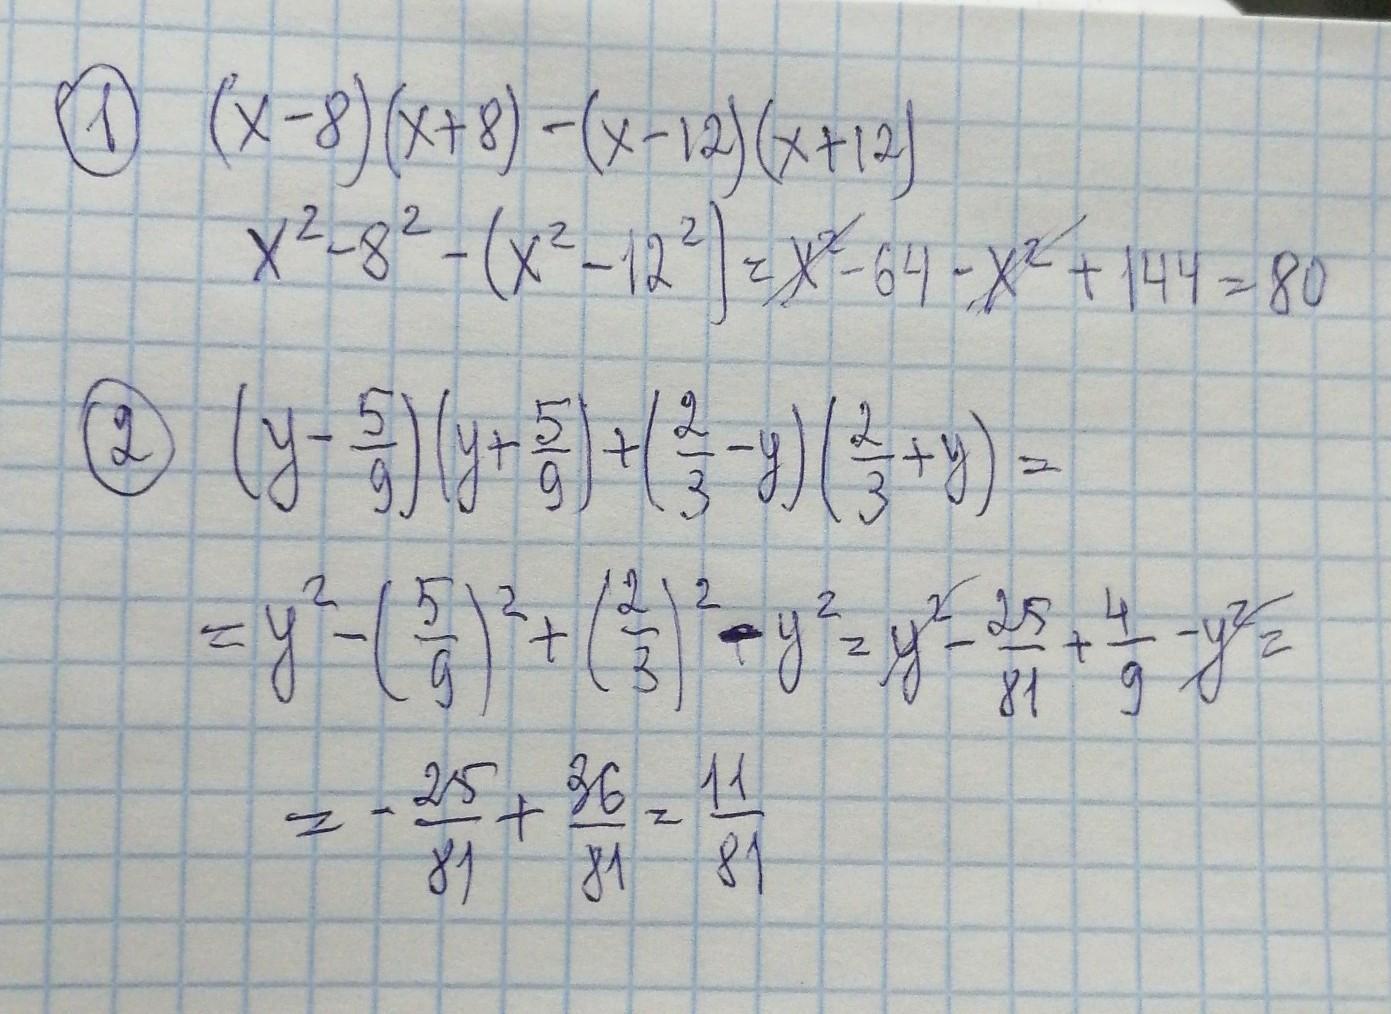 ① (x-8)(x+8)-(x-12)(x+12)
x²-8²-(x²-12²)=x²-64-x²+144=80
② (y-5/9)(y+5/9)+(2/3-y)(2/3+y)=
=y²-(5/9)²+(2/3)²-y²=y²-25/81+4/9-y²=
=-25/81+36/81=11/81